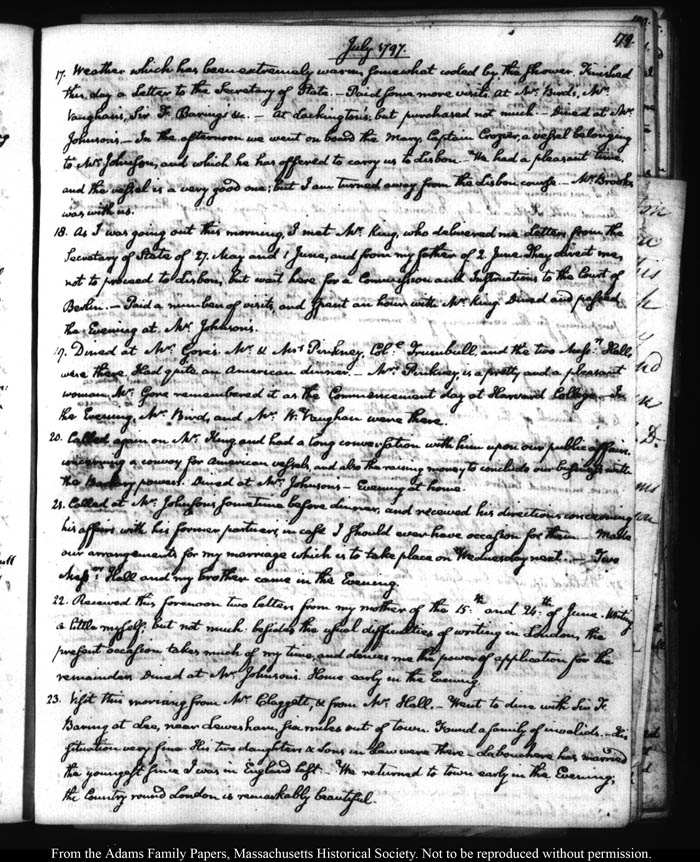 July 1797.
179.
17. Weather which has been extremely warm, somewhat cooled by the shower. Finished
this day a Letter to the Secretary of State. — Paid some more visits. At Mr. Bird's, Mr.
Vaughan's, Sir F. Baring's &c. — At Lackington's, but purchased not much. — Dined at Mr.
Johnson's — In the afternoon we went on board the Mary, Captain Crozier, a vessel belonging
to Mr. Johnson, and which he has offered to carry us to Lisbon. We had a pleasant time,
and the vessel is a very good one; but I am turned away from the Lisbon course. — Mr. Brooks
was with us.
18. As I was going out this morning, I met Mr. King, who delivered me Letters from the
Secretary of State of 27. May and 1 June, and from my father of 2 June. They direct me,
not to proceed to Lisbon, but wait here for a Commission and Instructions to the Court of
Berlin. — Paid a number of visits, and spent an hour with Mr. King. Dined and passed
the Evening at Mr. Johnson's.
19. Dined at Mr. Gore's. Mr. & Mrs. Pinkney, Coll. Trumbull, and the two Messrs. Halls
were there. Had quite an American dinner. — Mrs. Pinkney is a pretty and a pleasant
woman. Mr. Gore remembered it as the Commencement day at Harvard College. — In
the Evening, Mr. Bird, and Mr. W. Vaughan were there.
20. Called again on Mr. King and had a long conversation with him upon our public affairs,
concerning a convoy for American vessels, and also the raising money to conclude our business with
the Barbary powers. Dined at Mr. Johnson's — Evening at home.
21. Called at Mr. Johnson's sometime before dinner, and received his directions concerning
his affairs with his former partners, in case I should ever have occasion for them. — Made
our arrangements for my marriage which is to take place on Wednesday next. — Two
Messrs. Hall and my brother came in the Evening.
22. Received this forenoon two letters from my mother of the 15.th and 24.th of June. Writing
a little myself, but not much. besides the usual difficulties of writing in London, the
present occasion takes much of my time, and denies me the power of application for the
remainder. Dined at Mr. Johnson's. Home early in the Evening.
23. Visit this morning from Mr. Claggett, & from Mr. Hall. — Went to dine with Sir F.
Baring at Lee, near Lewesham, six miles out of town. Found a family of invalids. — His
situation very fine. His two daughters & Sons in Law were there — Labouchere has married
the youngest since I was in England last. — We returned to town early in the Evening;
the Country round London is remarkably beautiful.
From the Adams Family Papers, Massachusetts Historical Society. Not to be reproduced without permission.